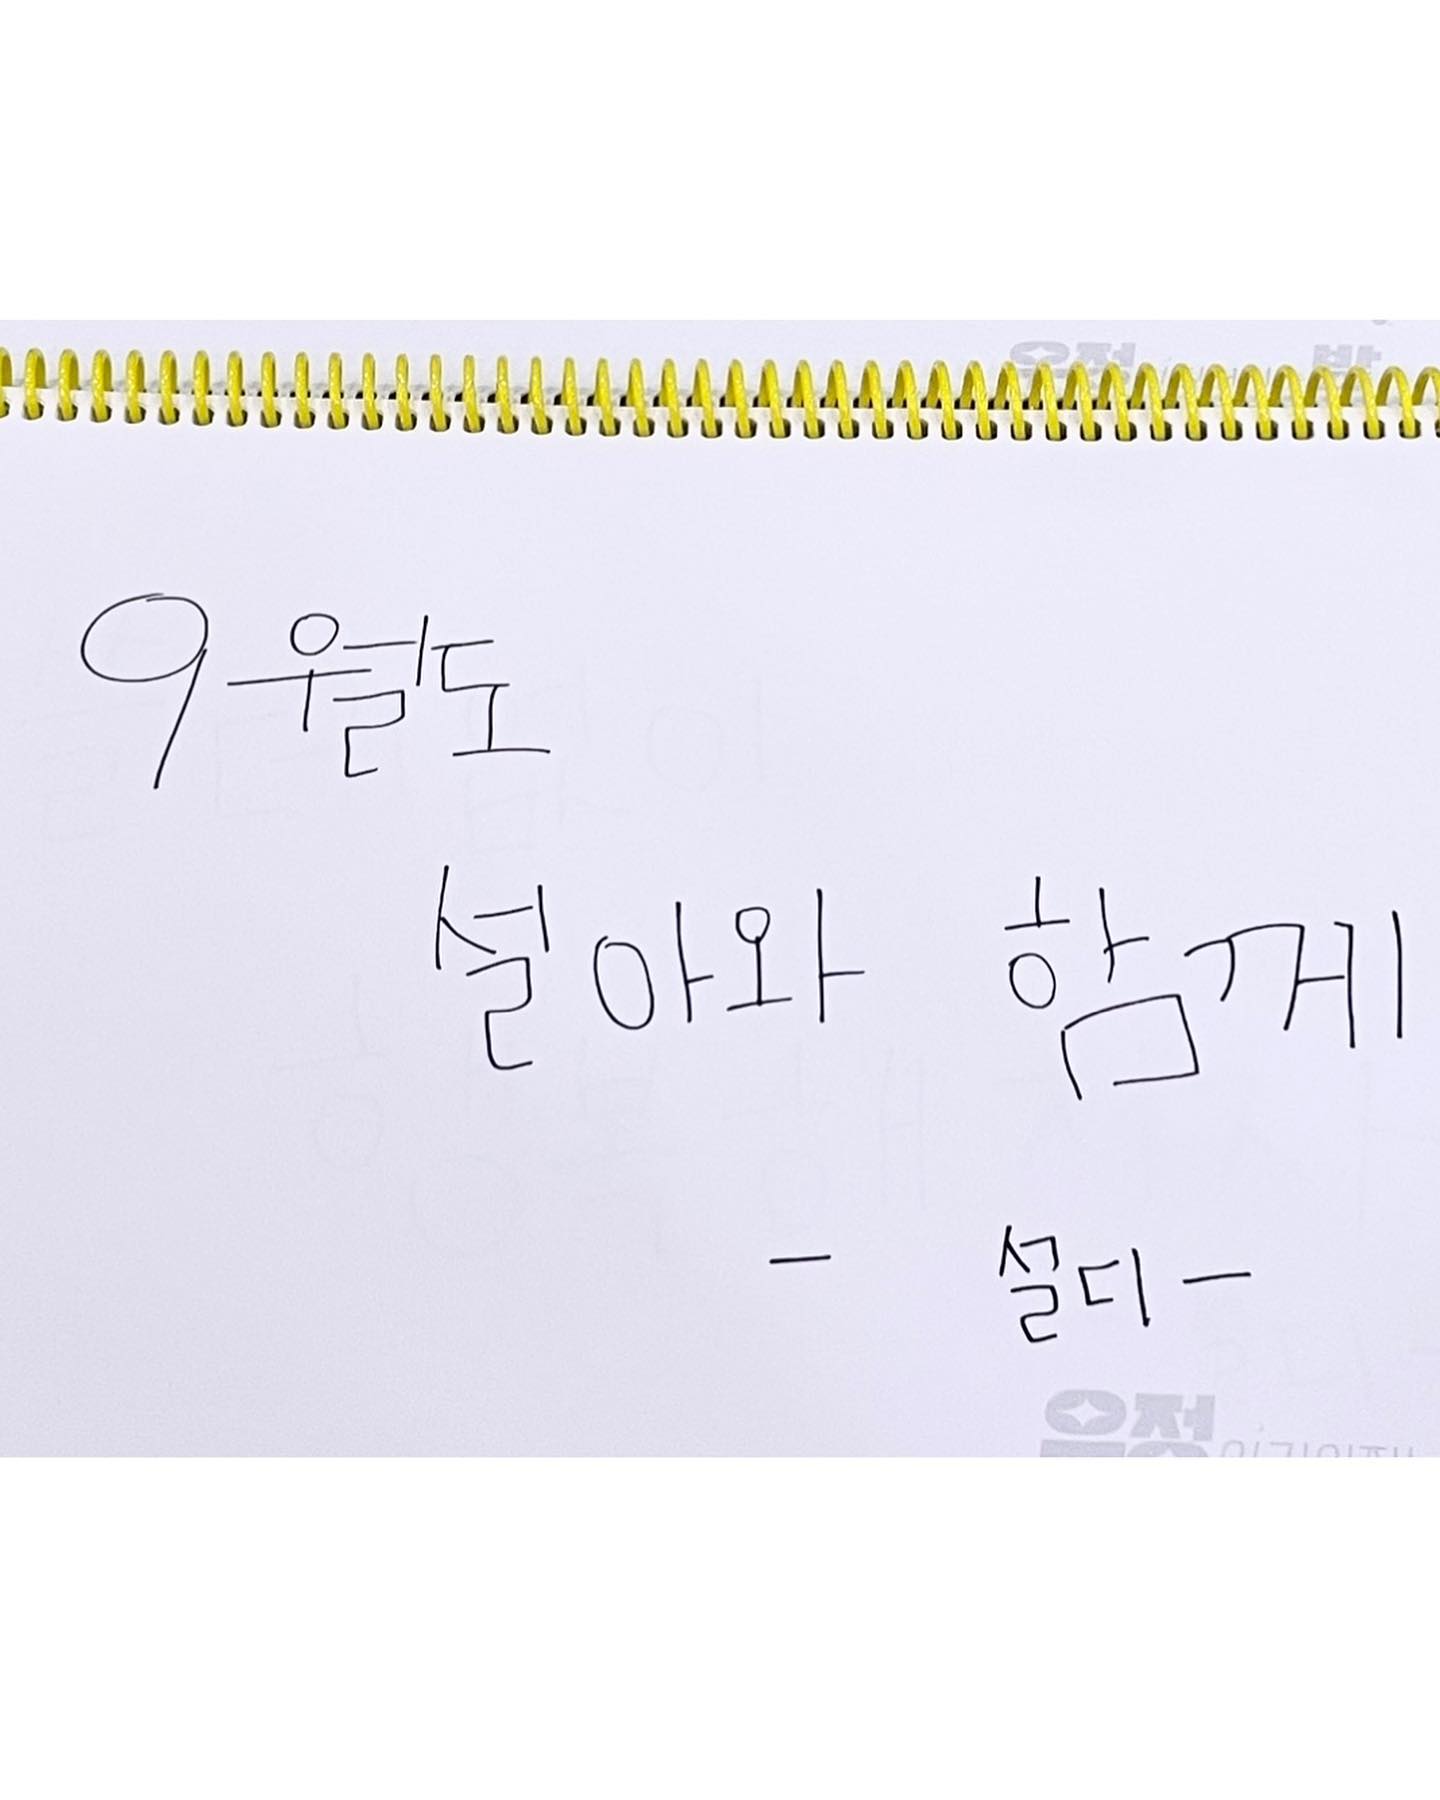 9월도
설아와 함께
- 설디 -